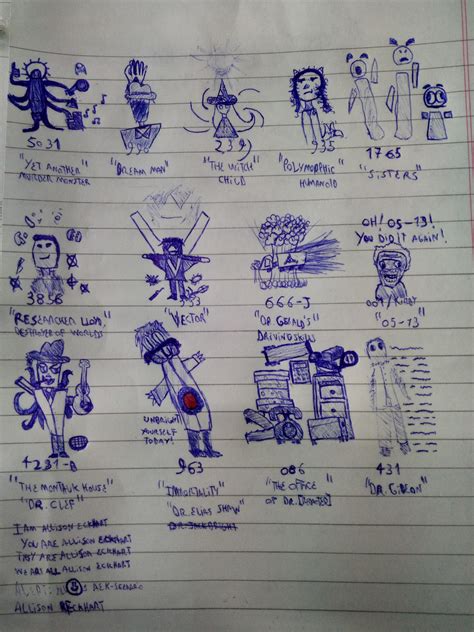 5031
"YET ANOTHER
MURDER MONSTER"
"DREAM MAN"
239
"THE WITCH
CHILD"
935
"POLYMORPHIC
HUMANOID"
1765
"SISTERS"
3856
"RESEARCHER LLOYD,
DESTROYER OF WORLDS
953
"VECTOR"
666-J
"DR GERALD'S
DRIVING SKILLS
OH! 05-13!
YOU DID IT AGAIN!
"05-13"
4231-D
"THE MONTAUK HOUSE"
"DR. CLEF"
UNBRIGHT
YOURSELF
TODAY!
963
"IMMORTALITY"
"DR. ELIAS SHAW"
086
"THE OFFICE
OF DR.
431
"DR. GIDEON"
I AM ALLISON ECKHART
YOU ARE ALLISON ECKHART
THEY ARE ALLISON ECKHART
WE ARE ALL ALLISON ECKHART
ALLISON ECKHART